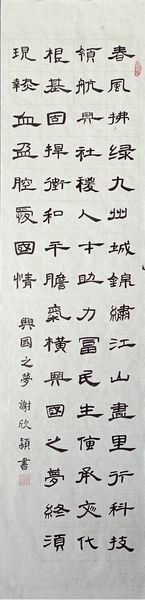 春風拂绿九州城錦繡江山畫里行科技
領航興社稷人才助力富民生傳承交代
根基固捍衛和平膽氣橫興國之夢終須
現熱血盈腔愛國情
興國之夢 謝欣穎書